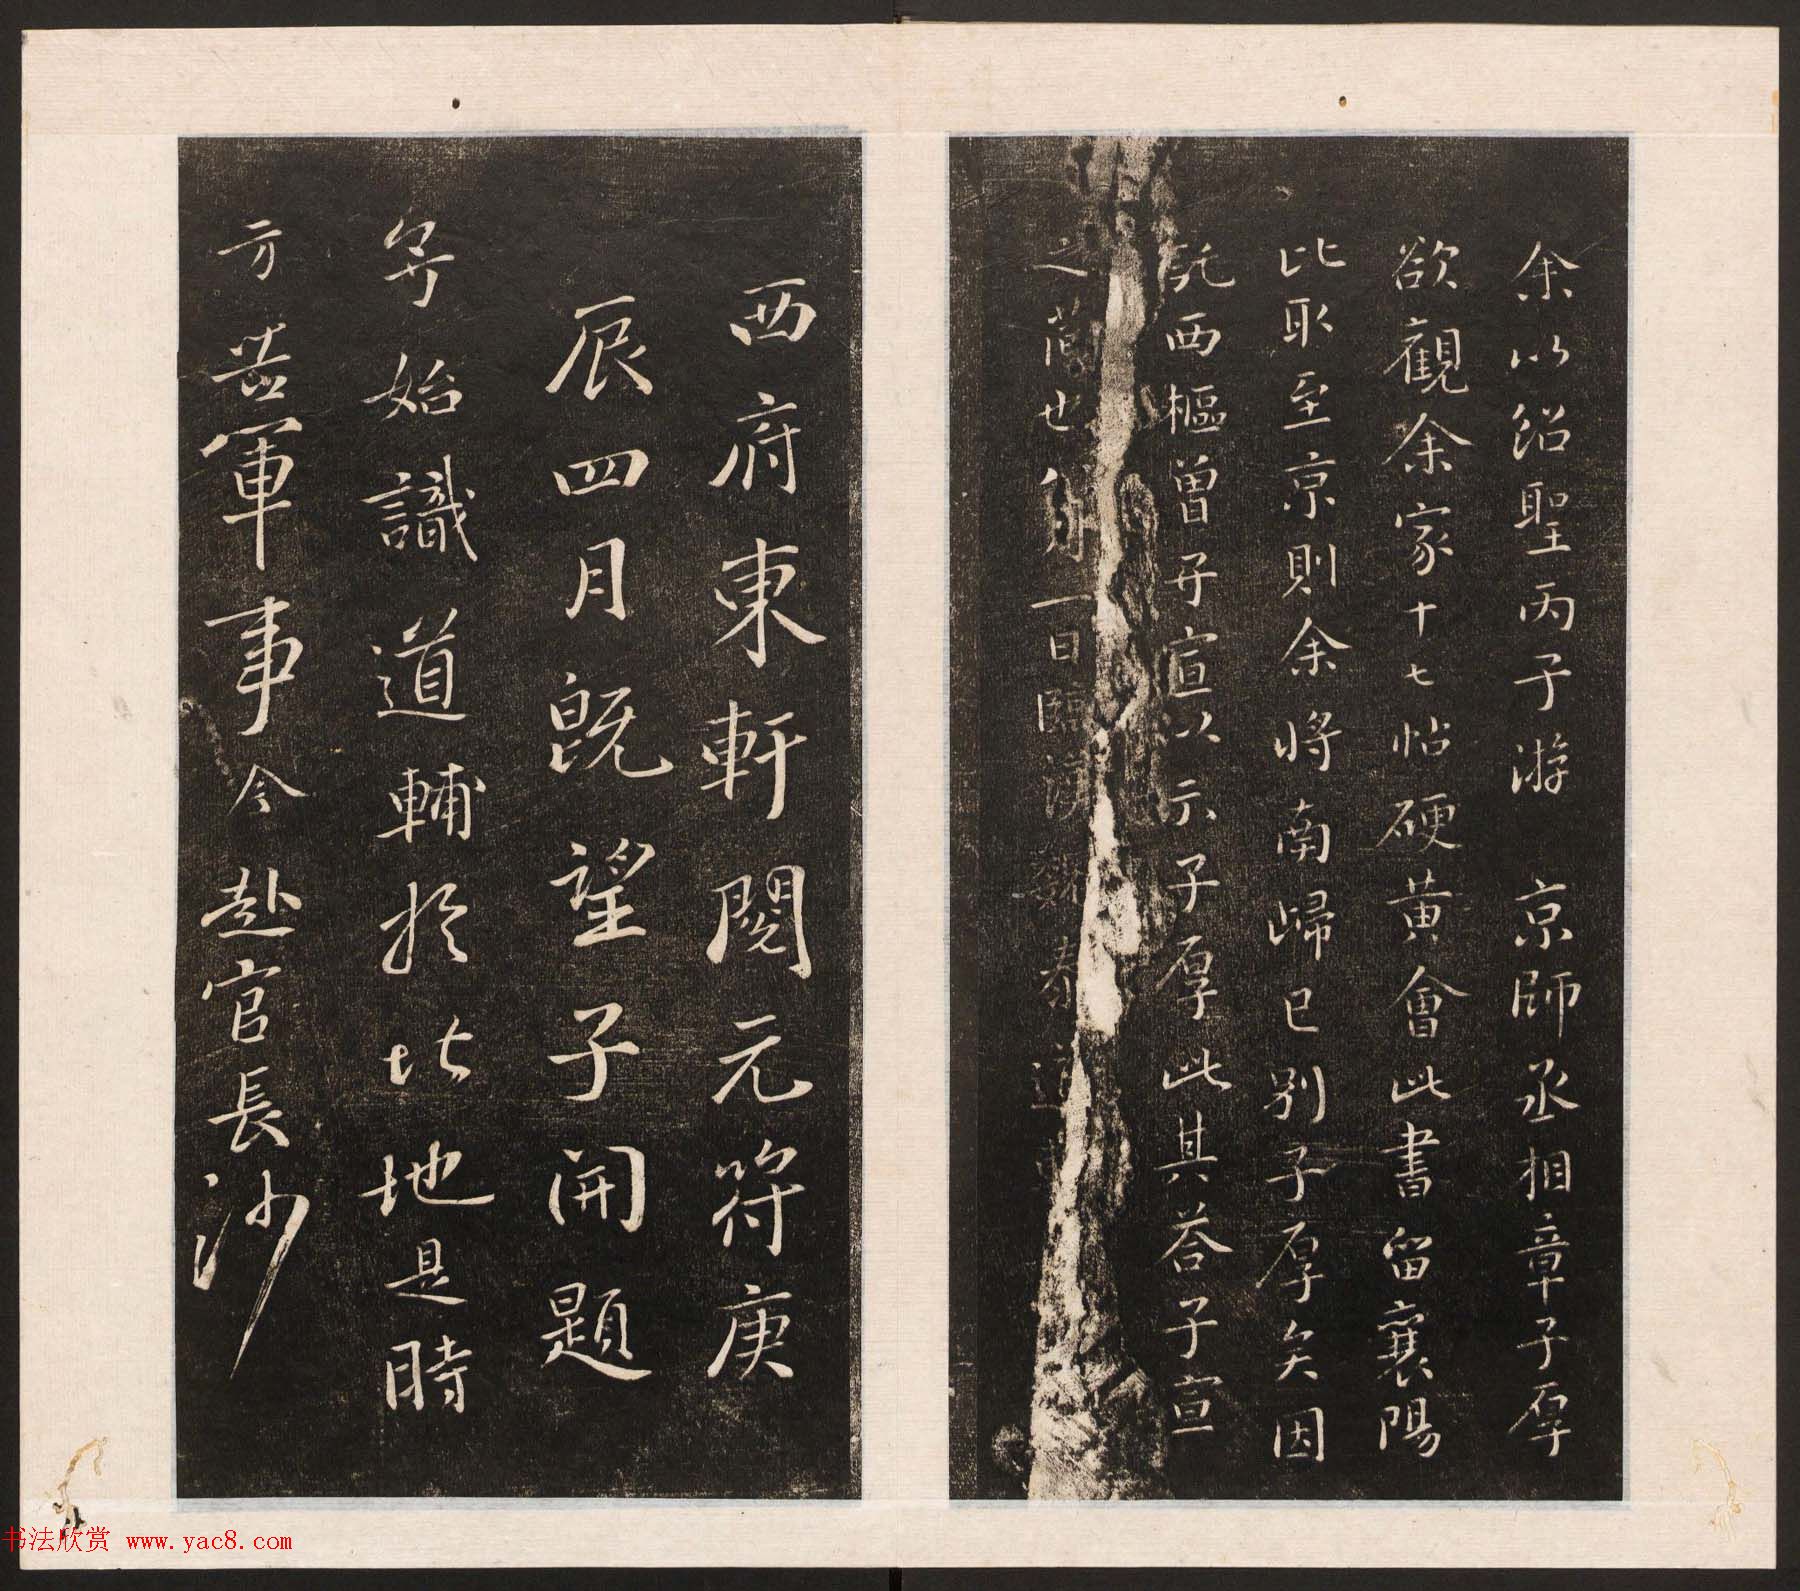 余以紹聖丙子游　京師丞相章子厚
欲觀余家十七帖硬黃會此書留襄陽
比取至京則余將南歸已别子厚矣因
託西樞曾子宣以示子厚此其荅子宣
之蕳也 一日臨漢魏泰道輔
西府東軒閱元符庚
辰四月既望子開題
㝍始識道輔於此地是時
方 軍事今赴官長沙
书法欣赏 www.yac8.com